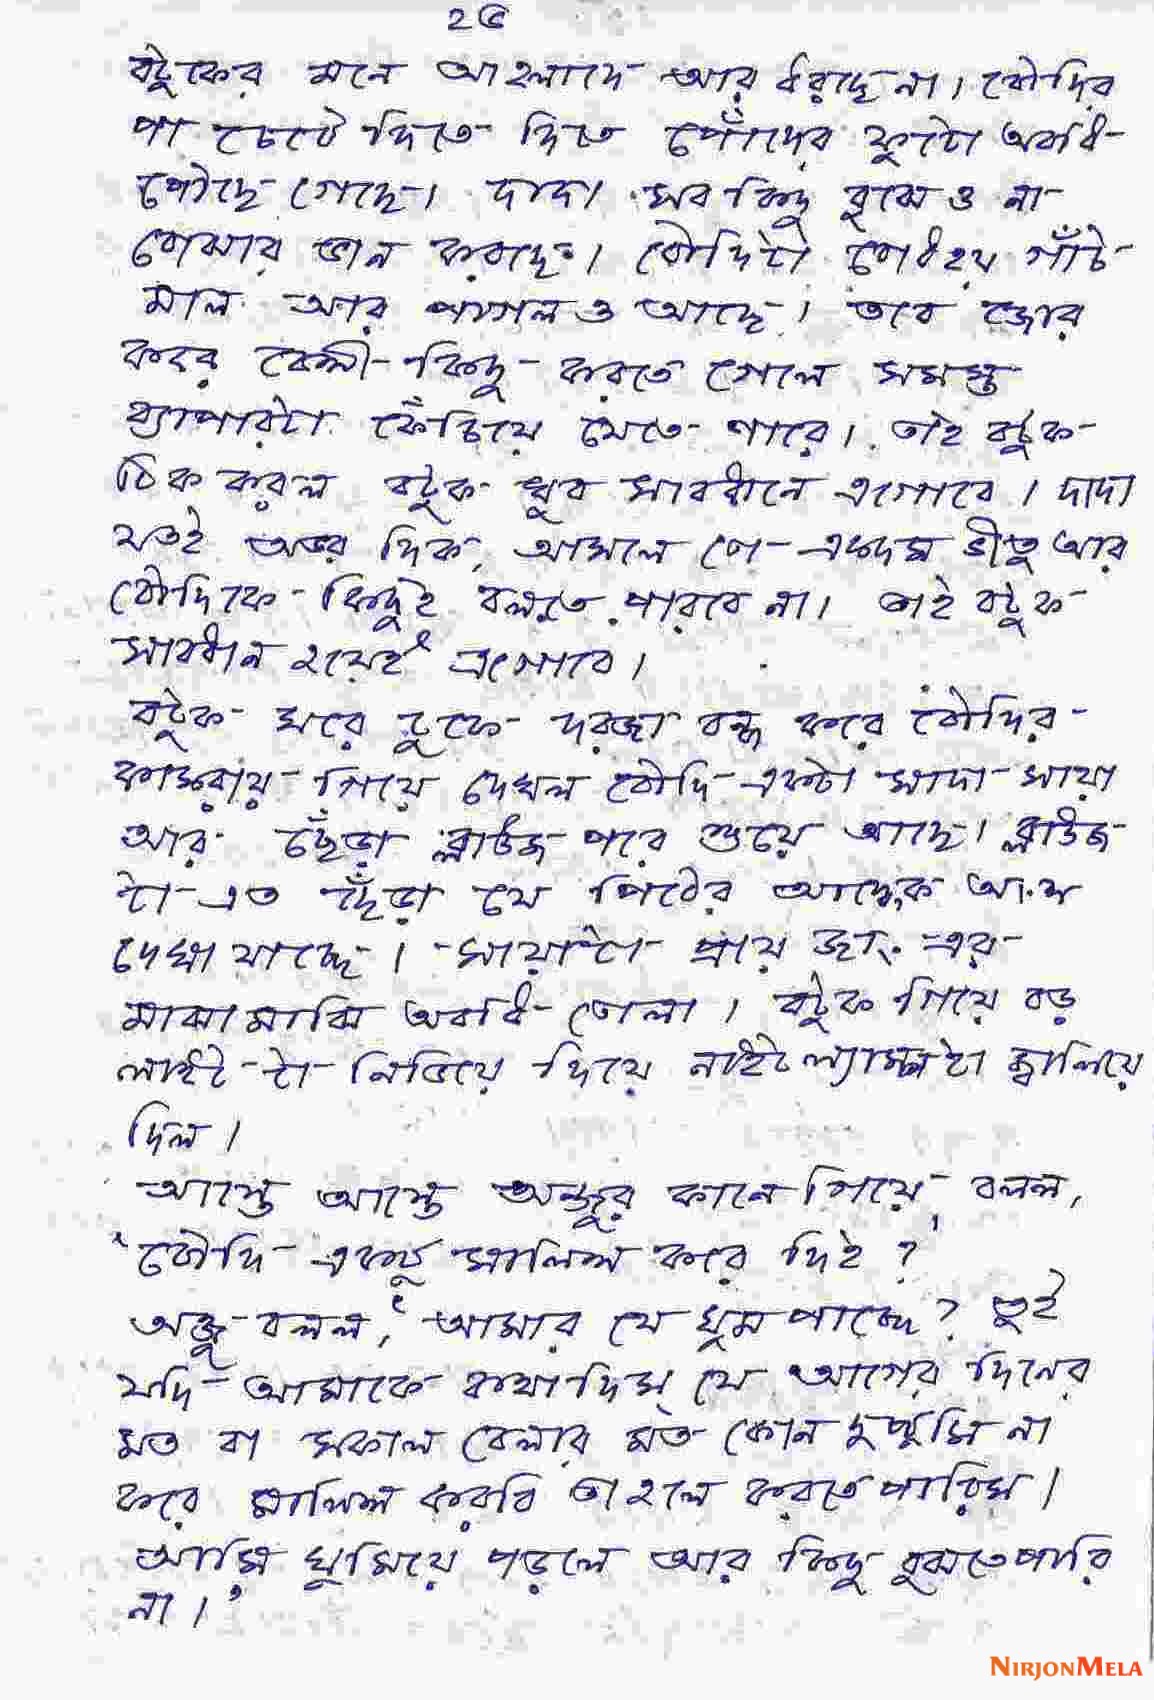 ২৫
বটুকের মনে আহলাদে আর ধরছেনা। বৌদির
পা চেটে দিতে দিতে পোঁদের ফুটো অবধি
পৌছে গেছে। দাদা সব কিছু বুঝেও না
বোঝার ভান করছে। বৌদিটা বোধহয় গাঁটে
মাল আর পাগলও আছে। তবে জোর
করে বেশী কিছু করতে গেলে সমস্ত
ব্যাপারটা কেঁচিয়ে যেতে পারে। তাই বটুক
ঠিক করল বটুক খুব সাবধানে এগোবে। দাদা
যতই অভয় দিক, আসলে তো একদম ভীতু আর
বৌদিকে কিছুই বলতে পারবে না। তাই বটুক
সাবধান হয়েই এগোবে।
বটুক ঘরে ঢুকে দরজা বন্ধ করে বৌদির
কামরায় গিয়ে দেখল বৌদি একটা সাদা সায়া
আর ছেঁড়া ব্লাউজ পরে শুয়ে আছে। ব্লাউজ
টা এত ছেঁড়া যে পিঠের আদ্ধেক অংশ
দেখা যাচ্ছে। সায়াটা প্রায় জাং এর
মাঝামাঝি অবধি তোলা। বটুক গিয়ে বড়
লাইট টা নিভিয়ে দিয়ে নাইট ল্যাম্পটা জ্বালিয়ে
দিল।
আস্তে আস্তে অঞ্জুর কানে গিয়ে বলল,
'বৌদি একটু মালিশ করে দিই?'
অঞ্জু বলল, 'আমার যে ঘুম পাচ্ছে? তুই
যদি আমাকে কথা দিস্ যে আগের দিনের
মত বা সকাল বেলার মত কোন দুষ্টুমি না
করে মালিশ করবি তাহলে করতে পারিস।
আমি ঘুমিয়ে পড়লে আর কিছু বুঝতে পারি
না।'
NIRJONMELA